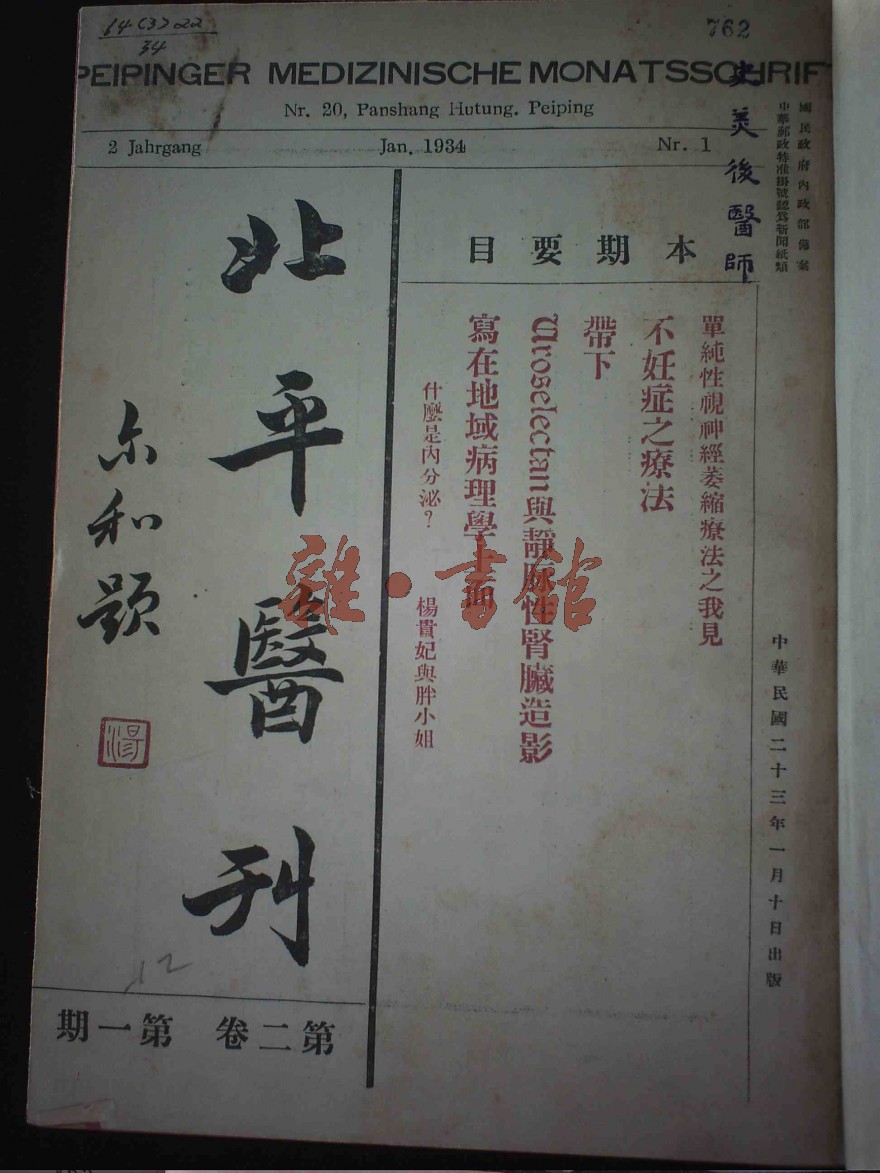 14(3)22
34
762
PEIPINGER MEDIZINISCHE MONATSSCHRIFT
Nr. 20, Panshang Hutung. Peiping
2 Jahrgang Jan. 1934 Nr. 1
國民政府內政部備案
中華郵政特准掛號認爲新聞紙類
史美後醫師
本期要目
單純性視神經萎縮療法之我見
不妊症之療法
帶下
Uroselectan與靜脈性腎臟造影
寫在地域病理學上面
什麼是內分泌? 楊貴妃與胖小姐
中華民國二十三年一月十日出版
北平醫刊
尔和題
第二卷 第一期
12
雜·書館